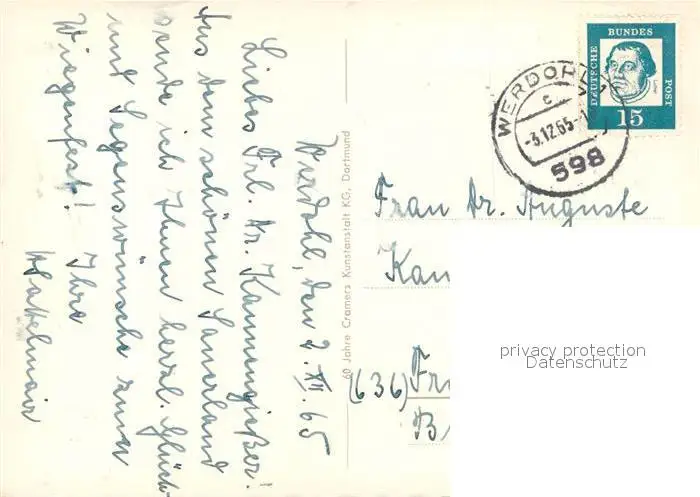 Werdohl, den 2. XII. 65
Liebes Frl. Dr. Kannengießer!
Aus dem schönen Sauerland
sende ich Ihnen herzl. Glück-
und Segenswünsche zum
Wiegenfest!
Ihre
60 Jahre Cramers Kunstanstalt KG, Dortmund
DEUTSCHE BUNDES POST
15
WERDOHL
c
-3.12.65-1
598
Frau Dr. Auguste
Kan
(636) Fr
B
privacy protection
Datenschutz